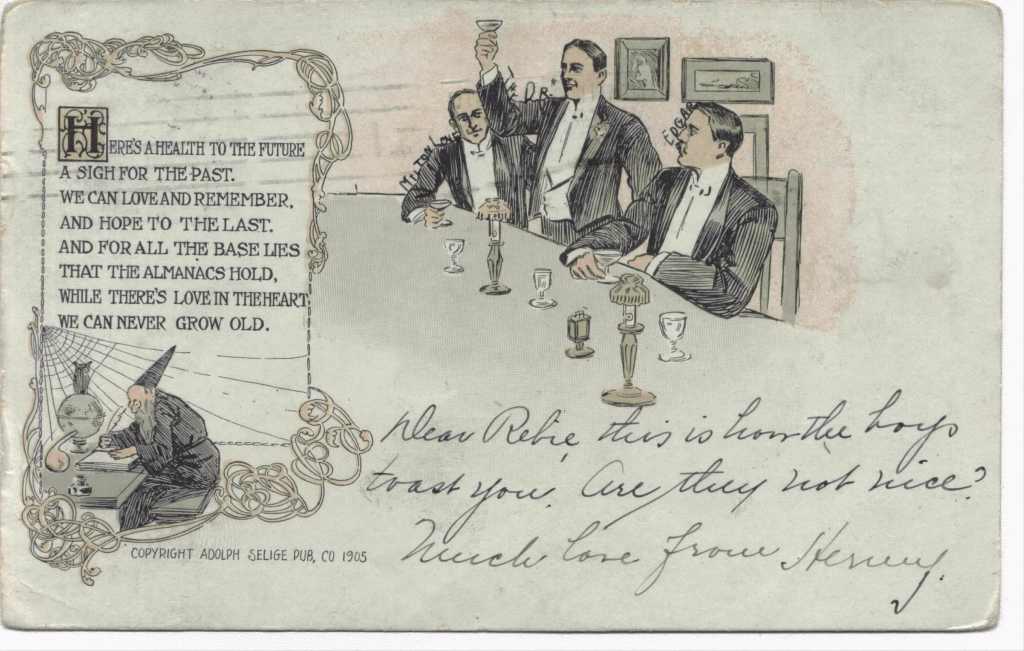 HERE'S A HEALTH TO THE FUTURE
A SIGH FOR THE PAST.
WE CAN LOVE AND REMEMBER,
AND HOPE TO THE LAST.
AND FOR ALL THE BASE LIES
THAT THE ALMANACS HOLD,
WHILE THERE'S LOVE IN THE HEART,
WE CAN NEVER GROW OLD.
COPYRIGHT ADOLPH SELIGE PUB, CO 1905
DR
EDGAR
Dear Rebie, this is how the boys
toast you. Are they not nice?
Much love from